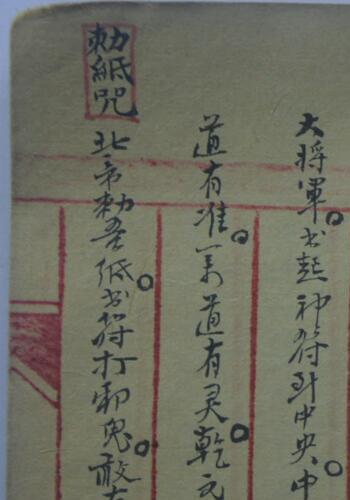 大将軍。书起神符到中央中
道有准。一道有灵乾。元
勅紙咒
北帝勅吾紙。书符打邪鬼。敢有